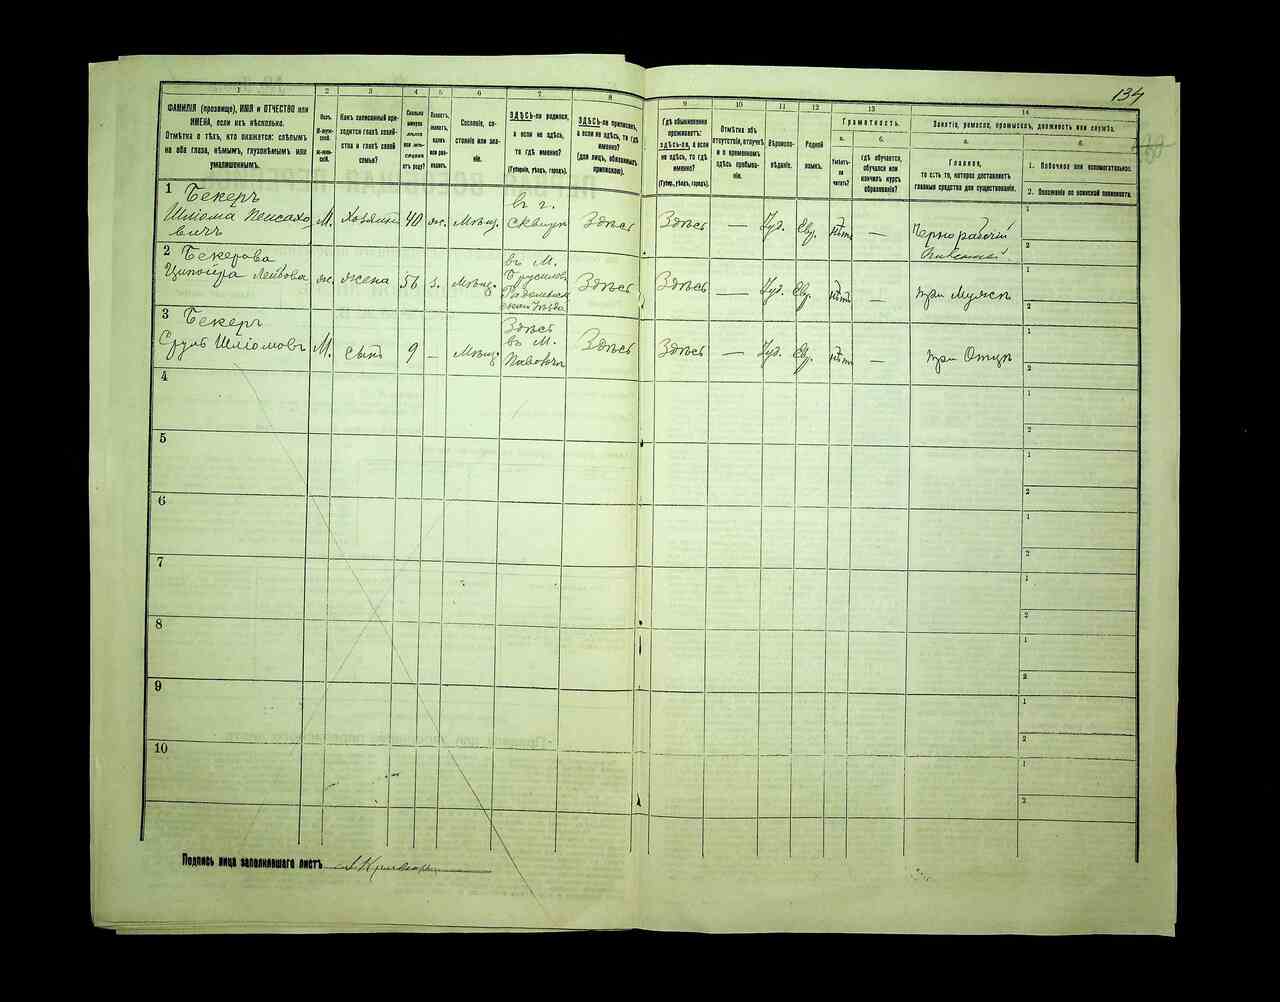 134
1
2
3
4
5
6
7
8
9
10
11
12
13
14
ФАМИЛІЯ (прозвище), ИМЯ и ОТЧЕСТВО или
ИМЕНА, если ихъ нѣсколько.
Отмѣтка о тѣхъ, кто окажется: слѣпымъ
на оба глаза, нѣмымъ, глухонѣмымъ или
умалишеннымъ.
Полъ.
М-муж-
ской.
Ж-жен-
скій.
Какъ записанный при-
ходится главѣ хозяй-
ства и главѣ своей
семьи?
Сословіе, со-
стояніе или зва-
ніе.
ЗДѢСЬ-ли родился,
а если не здѣсь,
то гдѣ именно?
(Губернія, уѣздъ, городъ).
ЗДѢСЬ-ли приписанъ,
а если не здѣсь, то гдѣ
именно?
(для лицъ, обязанныхъ
припискою).
Гдѣ обыкновенно
проживаетъ:
здѣсь-ли, а если
не здѣсь, то гдѣ
именно?
(Губер., уѣздъ, городъ).
Отмѣтка объ
отсутствіи, отлучкѣ
и о временномъ
здѣсь пребыва-
ніи.
Вѣроиспо-
вѣданіе.
Родной
языкъ.
Грамотность.
а.
б.
Умѣетъ-
ли
читать?
гдѣ обучается,
обучался или
кончилъ курсъ
образованія?
Занятіе, ремесло, промыселъ, должность или служба.
а.
б.
Главное,
то есть то, которое доставляетъ
главныя средства для существованія.
1. Побочное или вспомогательное.
2. Положеніе по воинской повинности.
1 Бекеръ
Шліома Пейсахо-
вичъ
М.
Хозяинъ
40
ж.
Мѣщ.
въ г.
Сквирѣ
Здѣсь
Здѣсь
—
Іуд.
Евр.
нѣтъ
—
Чернорабочій
1
2
2 Бекерова
Ципойра Лейбова
ж.
жена
56
з.
Мѣщ.
въ М.
Брусиловѣ
Здѣсь
Здѣсь
—
Іуд.
Евр.
нѣтъ
—
при Мужѣ
1
2
3 Бекеръ
Сруль Шліомовъ
М.
сынъ
9
—
Мѣщ.
Здѣсь
въ М.
Паволочь
Здѣсь
Здѣсь
—
Іуд.
Евр.
нѣтъ
—
при Отцѣ
1
2
4
1
2
5
1
2
6
1
2
7
1
2
8
1
2
9
1
2
10
1
2
Подпись лица заполнявшаго листъ